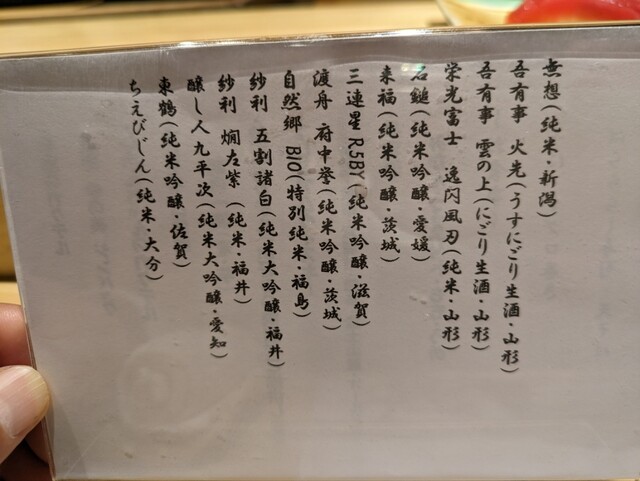 無想(純米・新潟)
吾有事 火先(うすにごり生酒・山形)
吾有事 雲の上(にごり生酒・山形)
栄光富士 逸閃風刃(純米・山形)
石鎚(純米吟醸・愛媛)
来福(純米吟醸・茨城)
三連星 R5BY(純米吟醸・滋賀)
渡舟 府中誉(純米吟醸・茨城)
自然郷 BIO(特別純米・福島)
紗利 五割諸白(純米大吟醸・福井)
紗利 燗左紫(純米・福井)
醸し人九平次(純米大吟醸・愛知)
東鶴(純米吟醸・佐賀)
ちえびじん(純米・大分)